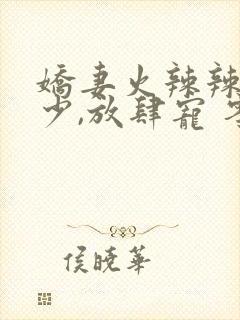 嬌妻火辣辣
少,放肆寵
侯曉華